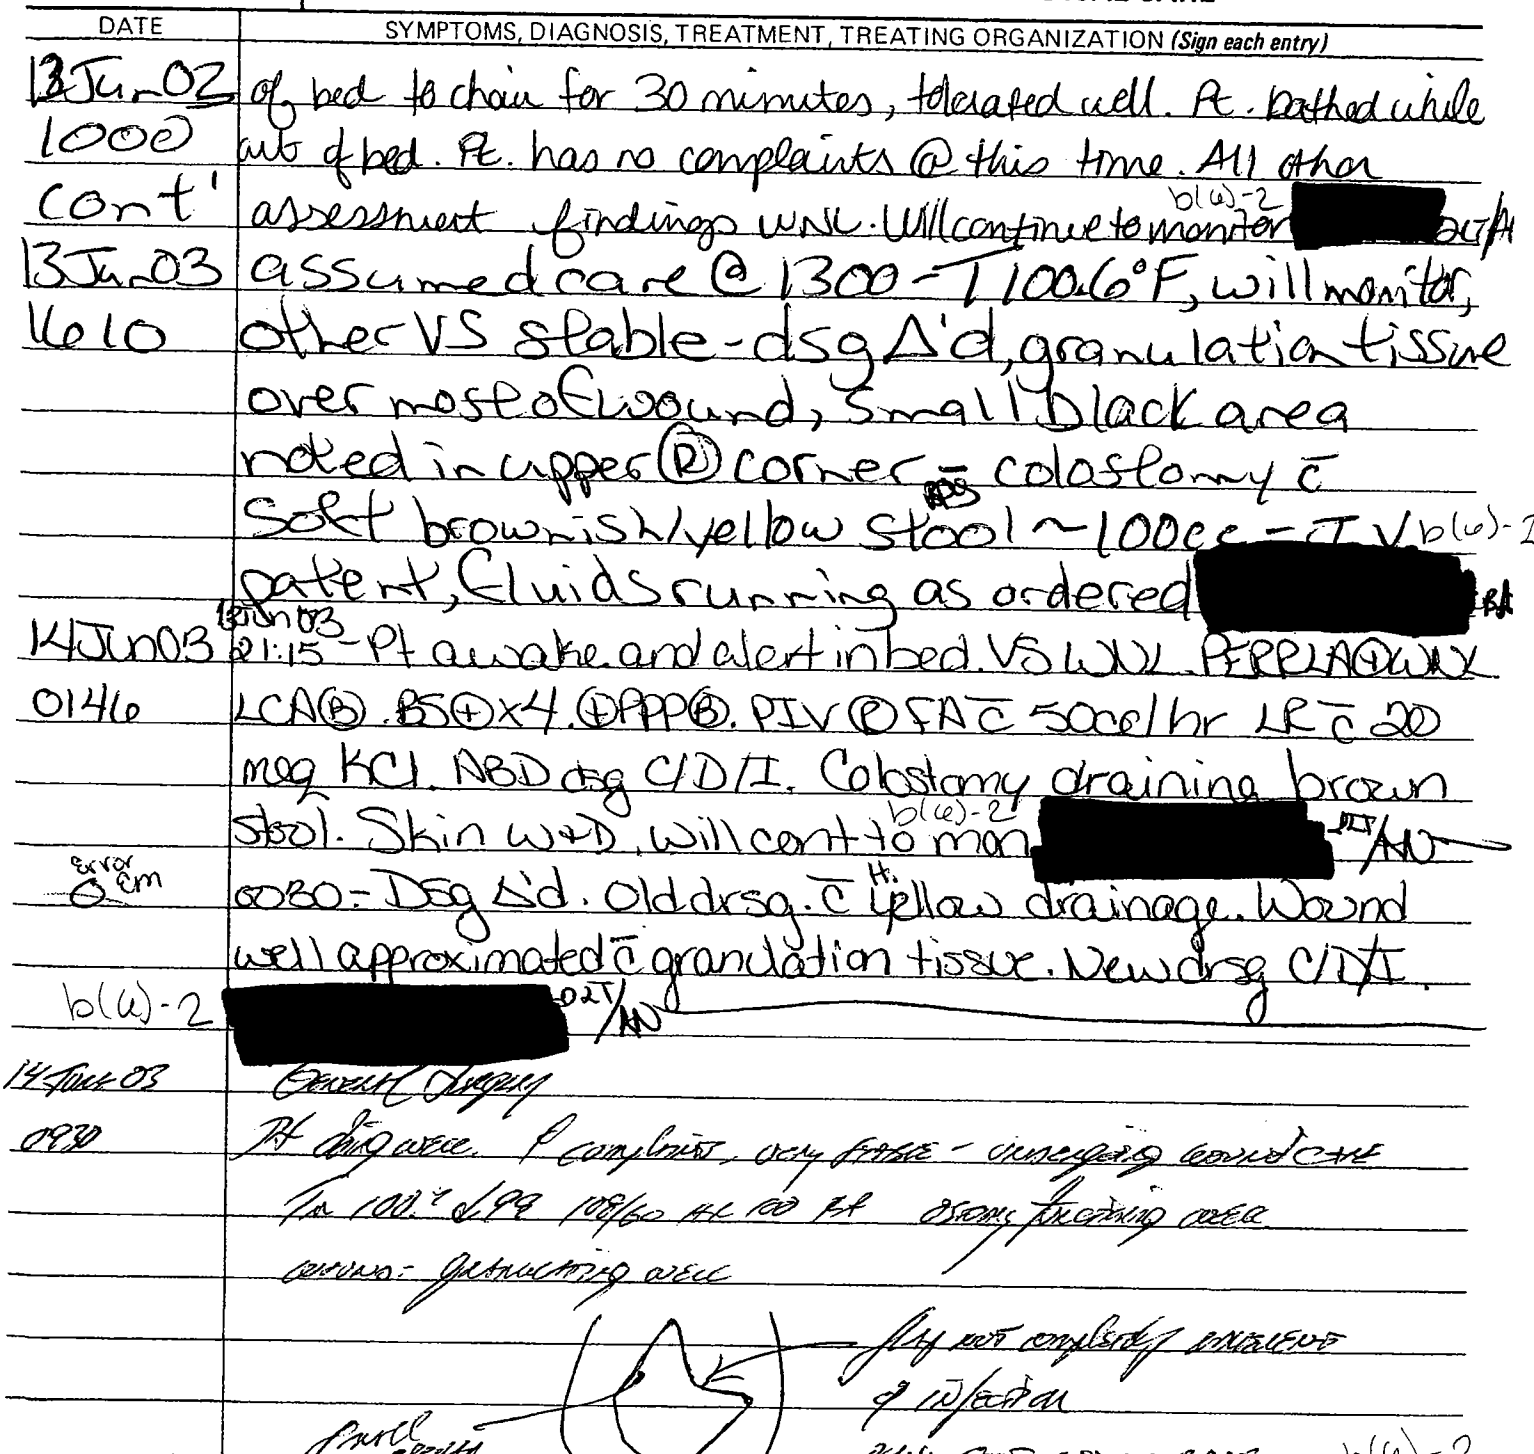 DATE SYMPTOMS, DIAGNOSIS, TREATMENT, TREATING ORGANIZATION (Sign each entry)
13 Jun 02 of bed to chair for 30 minutes, tolerated well. Pt. bathed while
1000 out of bed. Pt. has no complaints @ this time. All other
cont' assessment findings WNL. Will continue to monitor b(6)-2 2LT/AN
13 Jun 03 assumed care @ 1300 - T 100.6°F, will monitor,
1610 other VS stable - dsg Δ'd, granulation tissue
over most of wound, small black area
noted in upper Ⓡ corner - colostomy c̄
soft brownish/yellow stool ~100cc - IV b(6)-2
patent, fluids running as ordered
13 Jun 03
14 Jun 03 21:15 - Pt awake and alert in bed. VS WNL. PERRLA
0146 LCAⒷ. BS⊕x4. ⊕PPPⒷ. PIV Ⓡ FA c̄ 50cc/hr LR c̄ 20
meq KCl. ABD dsg C/D/I. Colostomy draining brown
stool. Skin W+D. Will cont to mon b(6)-2 /AN
error
cm 0030 - Dsg Δ'd. Old drsg. c̄ yellow drainage. Wound
well approximated c̄ granulation tissue. New drsg C/D/I.
b(6)-2 /AN
14 June 03 General Surgery
0930 Pt doing well. complaints, very stable - undergoing wound care
Tm 99 108/60 HR 100 functioning well
wound - granulating well
not completely
of infection
small
b(6)-2